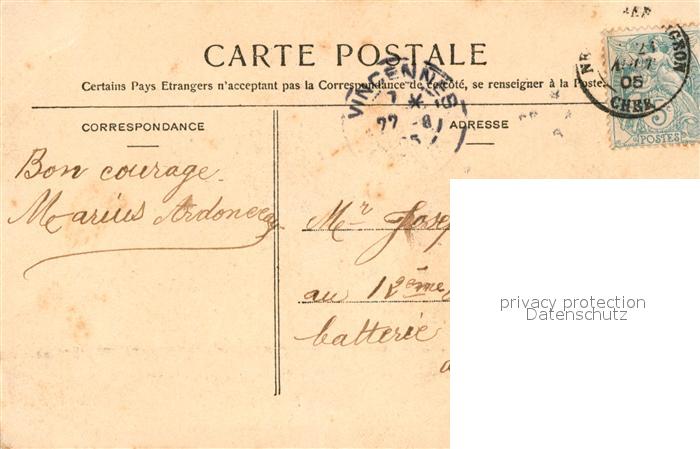 CARTE POSTALE
Certains Pays Etrangers n'acceptant pas la Correspondance de ce côté, se renseigner à la Poste.
CORRESPONDANCE
ADRESSE
Bon courage.
Marius
Mr
au 12ème
batterie
VINCENNES
7 *
27 -8
05
AOUT
05
CHER
5
POSTES
privacy protection
Datenschutz